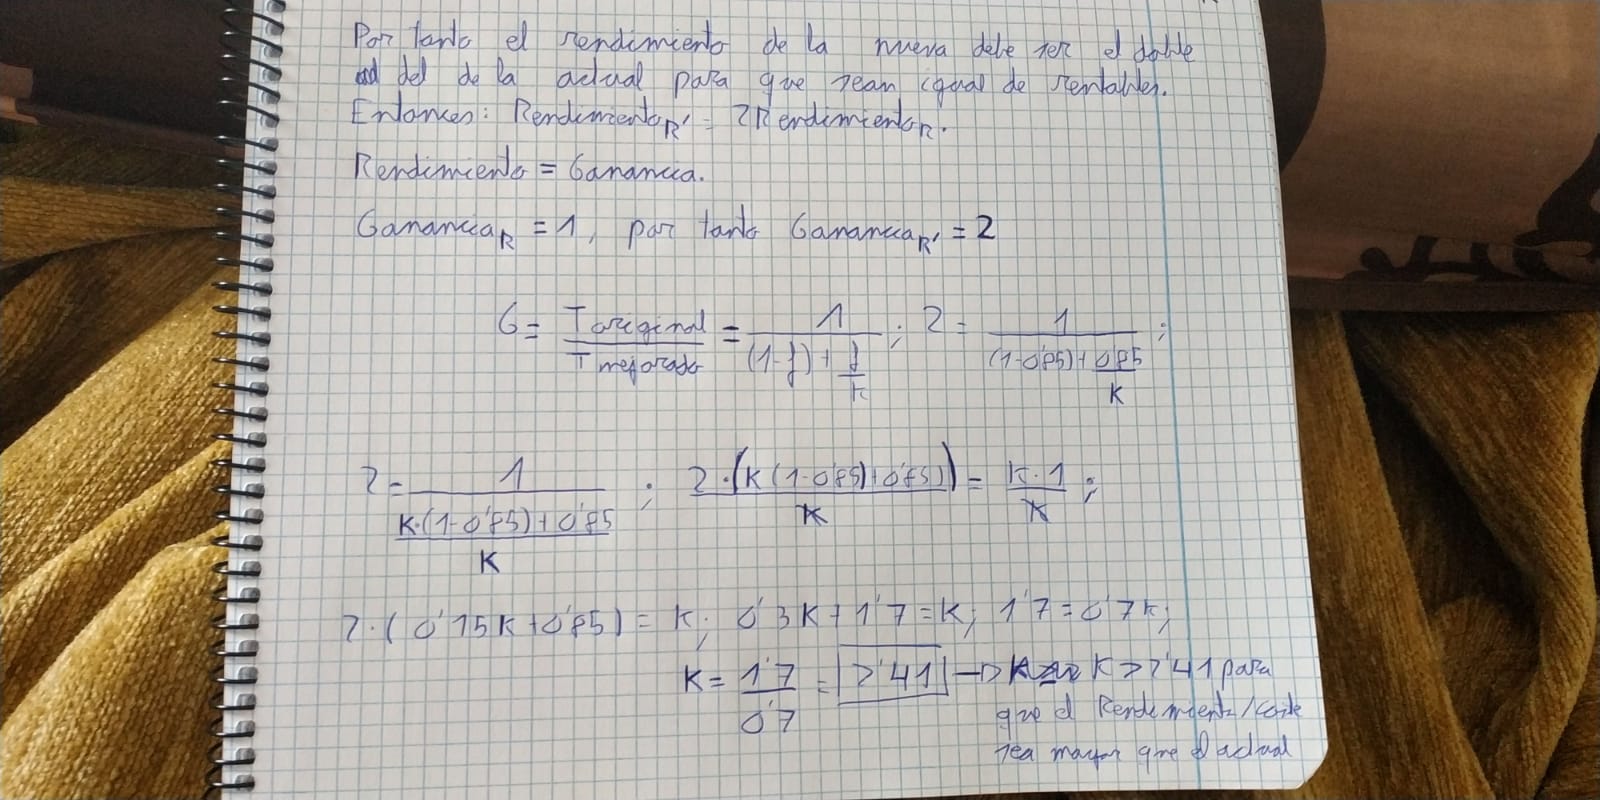 Por tanto el rendimiento de la nueva debe ser el doble
del de la actual para que sean igual de rentables.
Entonces: Rendimiento_R' = 2Rendimiento_R.
Rendimiento = Ganancia.
Ganancia_R = 1, por tanto Ganancia_R' = 2
G = T original / T mejorado = 1 / ((1-f) + f/k) ; 2 = 1 / ((1-0'85) + 0'85/K) ;
2 = 1 / ((K·(1-0'85)+0'85) / K) ; 2·(K(1-0'85)+0'85) / K = K·1 / K ;
2·(0'15K+0'85) = K; 0'3K+1'7=K; 1'7=0'7K;
K = 1'7 / 0'7 = 2'41 → K>2'41 para
que el Rendimiento/coste
sea mayor que el actual